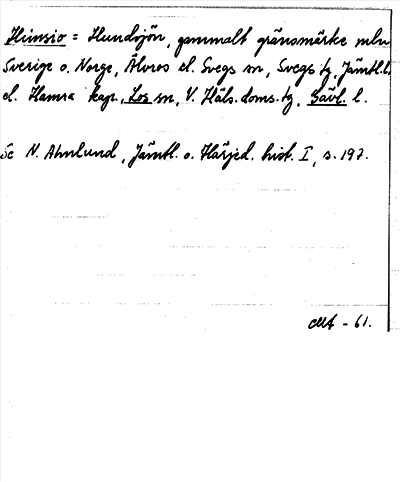 Heimsio = Hundsjön, gammalt gränsmärke mln
Sverige o. Norge, Älvros el. Svegs sn, Svegs tg, Jämtl. l.
el. Hamra kap., Los sn, V. Häls. doms. tg, Gävl. l.
Se N. Ahnlund, Jämtl. o. Härjed. hist. I, s. 197.
- 61.